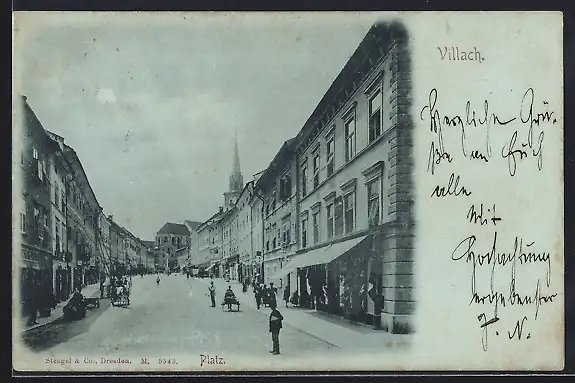 Villach.
Herzliche Grü-
ße an Euch
alle
Mit
Hochachtung
ergebenster
J. N.
Stengel & Co., Dresden. M. 5543. Platz.